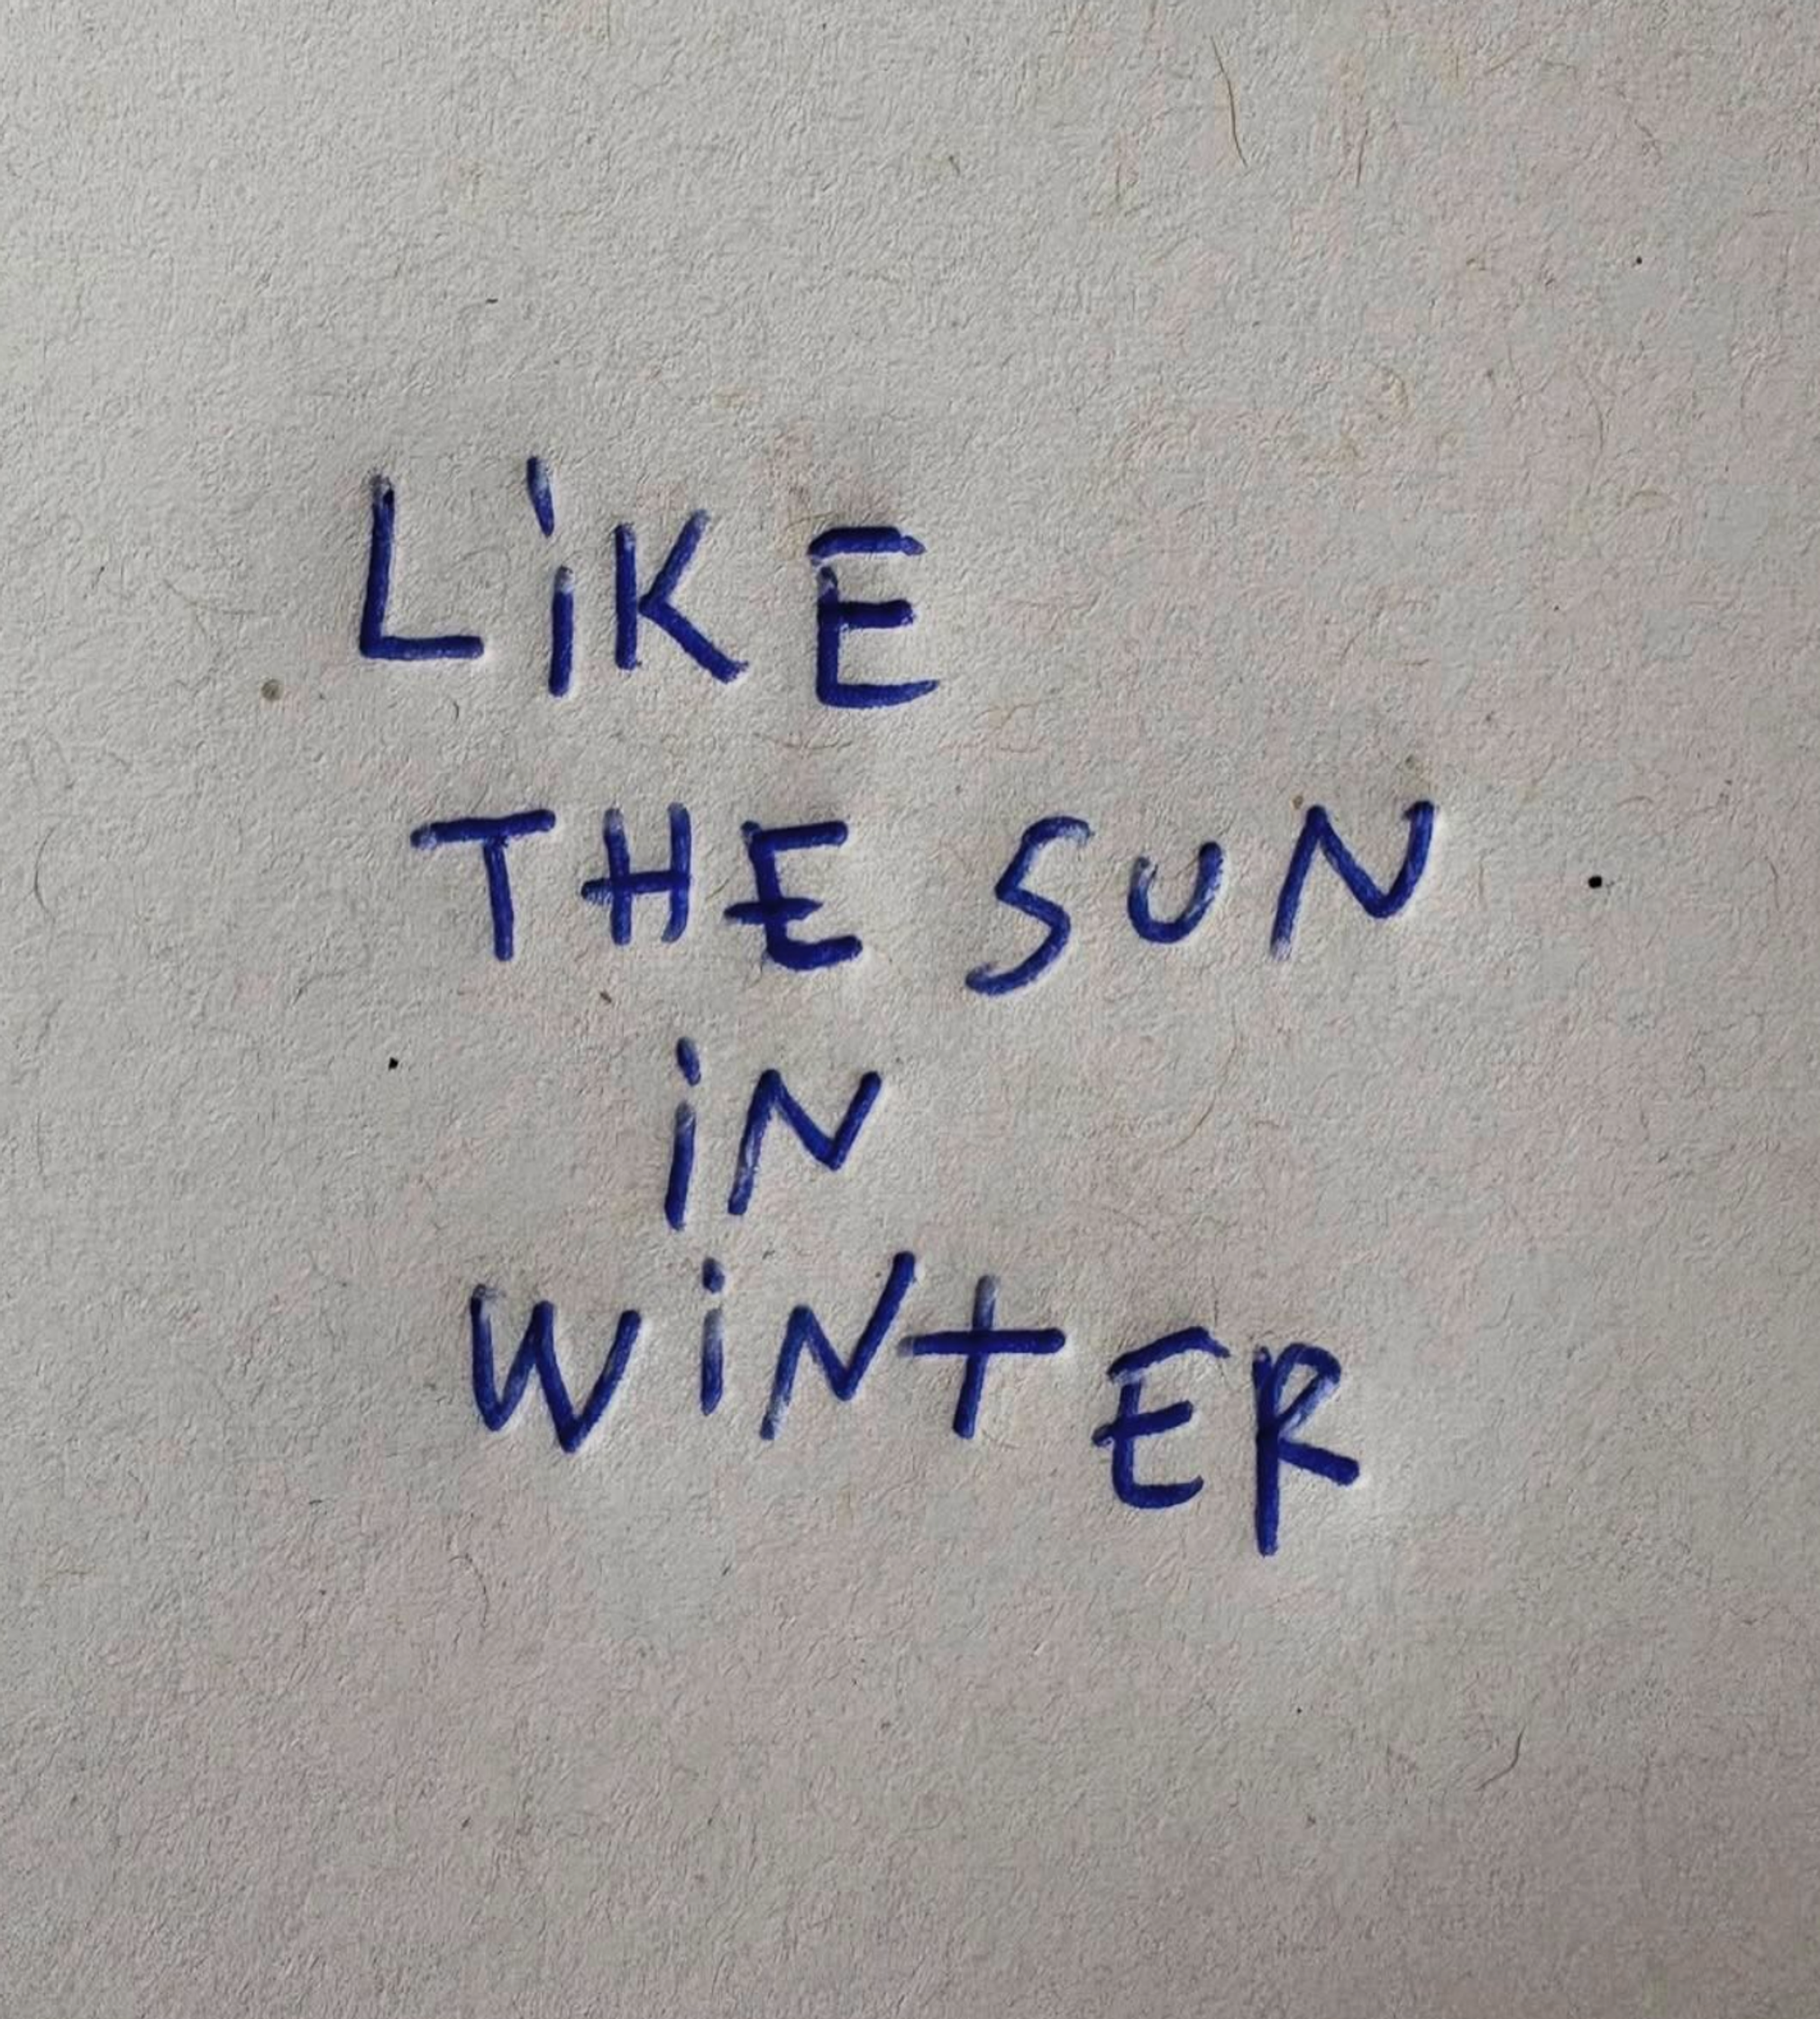 LiKE
THE SUN
iN
WiNtER